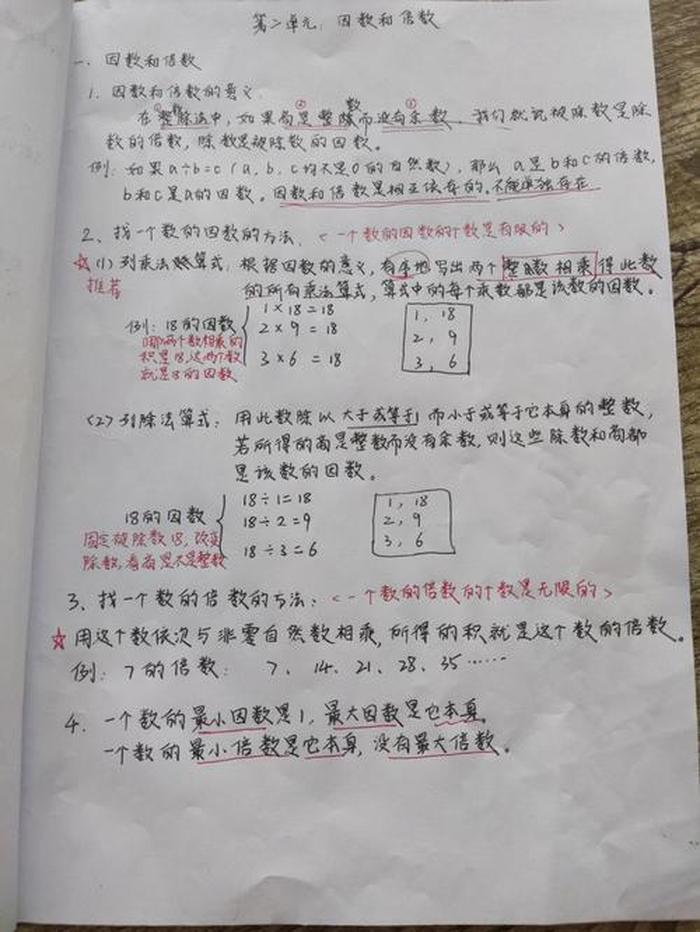 第二单元：因数和倍数
一、因数和倍数
1. 因数和倍数的意义
① 数 ② 数 ③
在整除法中，如果商是整除而没有余数，我们就说被除数是除
数的倍数，除数是被除数的因数。
例：如果a÷b=c（a、b、c均不是0的自然数），那么 a是b和c的倍数，
b和c是a的因数。因数和倍数是相互依存的，不能单独存在
2、找一个数的因数的方法、<一个数的因数的个数是有限的>
☆(1) 列乘法算式：根据因数的意义，有序地写出两个整数相乘得此数
推荐
的所有乘法算式，算式中的每个乘数都是该数的因数。
例：18的因数
1×18=18
2×9=18
3×6=18
1，18
2，9
3，6
哪两个数相乘的
积是18，这两个数
就是18的因数
(2) 列除法算式：用此数除以大于或等于1而小于或等于它本身的整数，
若所得的商是整数而没有余数，则这些除数和商都
是该数的因数。
18的因数
18÷1=18
18÷2=9
18÷3=6
1，18
2，9
3，6
固定被除数18，改变
除数，看商是不是整数
3、找一个数的倍数的方法：<一个数的倍数的个数是无限的>
☆用这个数依次与非零自然数相乘，所得的积就是这个数的倍数。
例：7的倍数：7、14、21、28、35……
4. 一个数的最小因数是1，最大因数是它本身。
一个数的最小倍数是它本身，没有最大倍数。